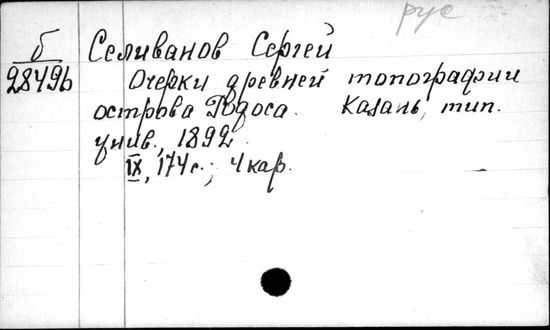 рус
б
28496
Селиванов Сергей
Очерки древней топографии
острова Родоса. Казань, тип.
унив., 1892.
IX, 174 с.; 4 кар.